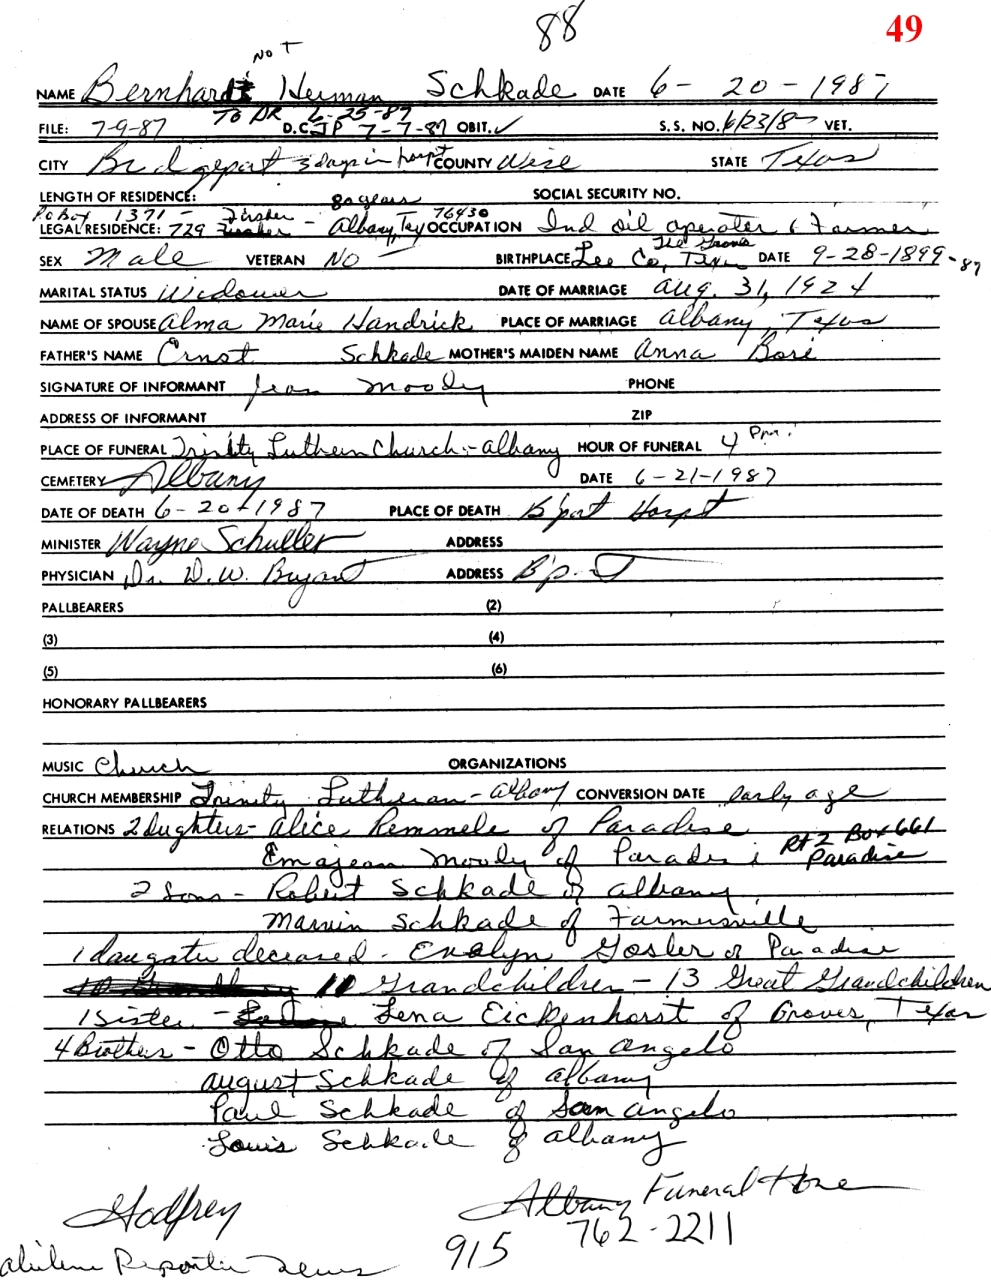 88 49
NOT
NAME Bernhardt Herman Schkade DATE 6-20-1987
To DR 6-25-87
FILE: 7-9-87 D.C. JP 7-7-87 OBIT. ✓ S.S. NO. 6/23/87 VET.
CITY Bridgeport 3 days in hospt COUNTY Wise STATE Texas
LENGTH OF RESIDENCE: 80 years SOCIAL SECURITY NO.
P.O. Box 1371 - Fincher 76430
LEGAL RESIDENCE: 729 - Albany, Tex OCCUPATION Ind oil operator & Farmer
The Grove
SEX Male VETERAN NO BIRTHPLACE Lee Co, Texas DATE 9-28-1899 - 87
MARITAL STATUS Widower DATE OF MARRIAGE Aug. 31, 1924
NAME OF SPOUSE Alma Marie Handrick PLACE OF MARRIAGE Albany, Texas
FATHER'S NAME Ernst Schkade MOTHER'S MAIDEN NAME Anna
SIGNATURE OF INFORMANT Jean Moody PHONE
ADDRESS OF INFORMANT ZIP
PLACE OF FUNERAL Trinity Luthern Church - Albany HOUR OF FUNERAL 4 Pm.
CEMETERY Albany DATE 6-21-1987
DATE OF DEATH 6-20-1987 PLACE OF DEATH B'port Hospt
MINISTER Wayne Schuller ADDRESS
PHYSICIAN Dr. D.W. Bryant ADDRESS B'p-T
PALLBEARERS (2)
(3) (4)
(5) (6)
HONORARY PALLBEARERS
MUSIC Church ORGANIZATIONS
CHURCH MEMBERSHIP Trinity Lutheran - Albany CONVERSION DATE early age
RELATIONS 2 dughters - Alice Remmele of Paradise
Emajean Moody of Paradise Rt 2 Box 661 Paradise
2 Sons - Robert Schkade of Albany
Marvin Schkade of Farmersville
1 daugater deceased - Evelyn Gosler of Paradise
11 Grandchildren - 13 Great Grandchildren
1 Sister - Lena Eickenhorst of Groves, Texas
4 Brothers - Otto Schkade of San Angelo
August Schkade of Albany
Paul Schkade of San Angelo
Louis Schkade of Albany
Godfrey Albany Funeral Home
915 762-2211
Abilene Reporter News